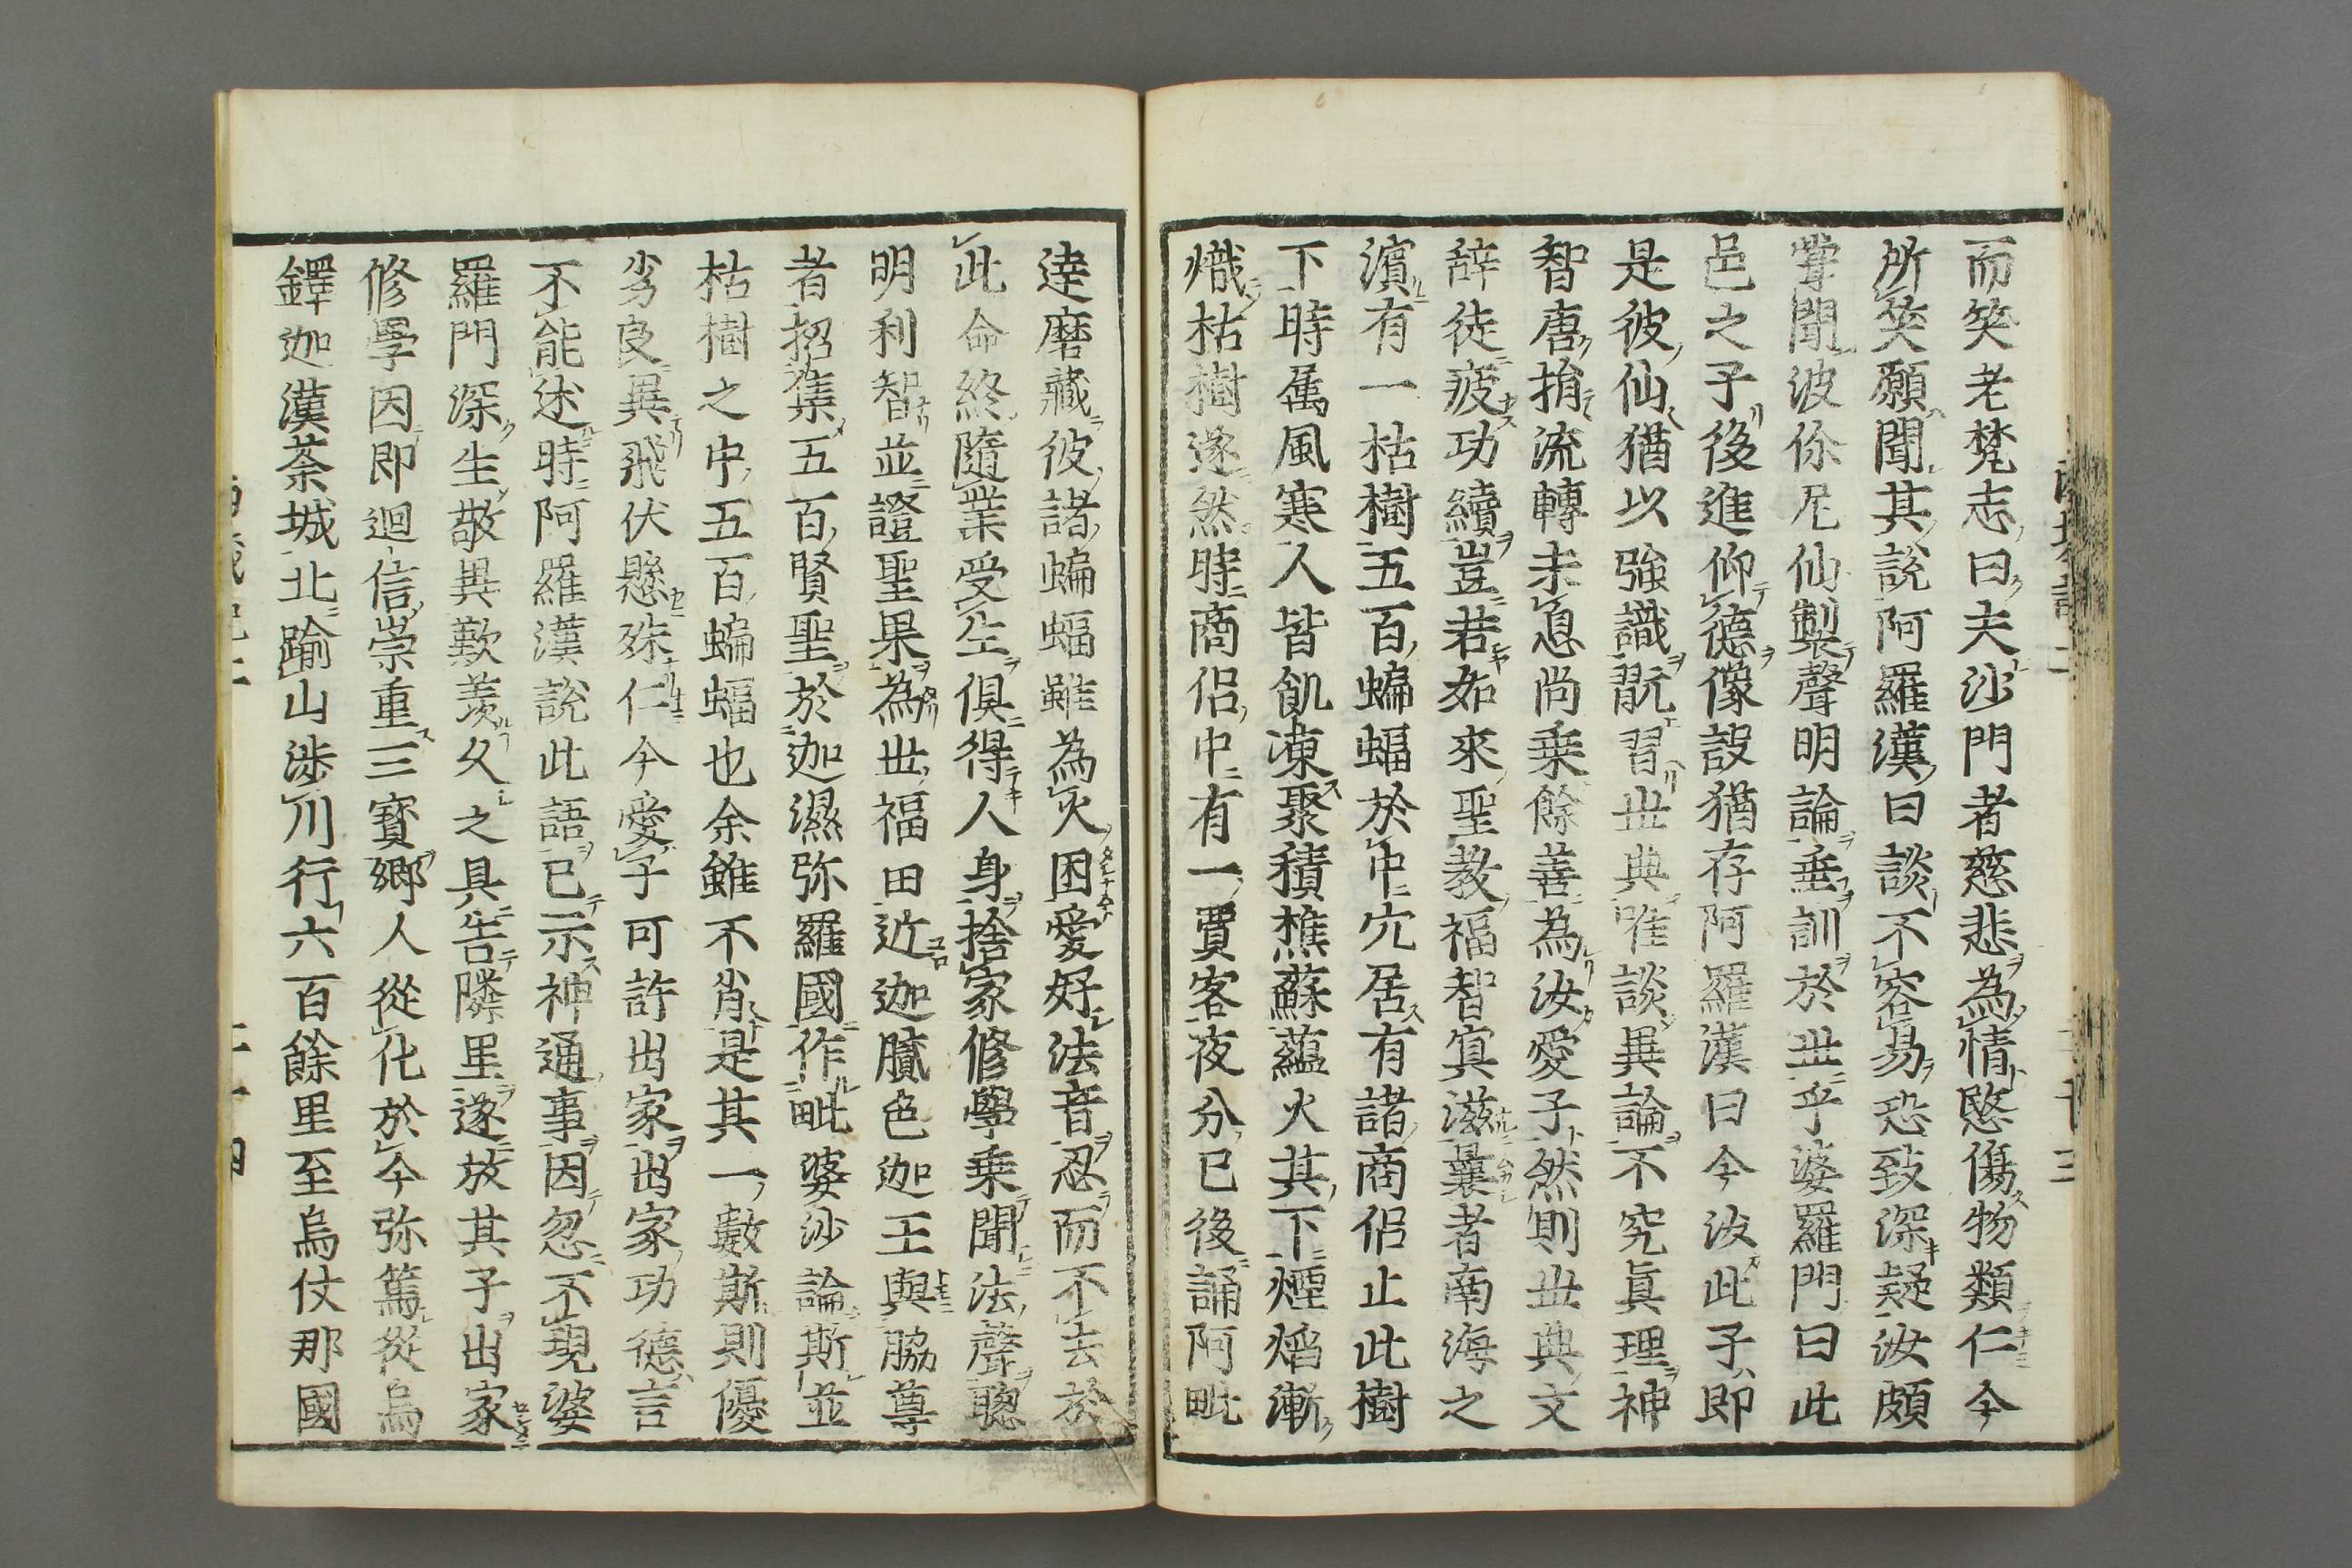 而笑老梵志曰夫沙門者慈悲為情愍傷物類仁今
所笑願聞其說阿羅漢曰談不容易恐致深疑汝頗
甞聞波你尼仙製聲明論垂訓於世乎婆羅門曰此
邑之子後進仰德像設猶存阿羅漢曰今汝此子即
是彼仙猶以強識翫習世典唯談異論不究眞理神
智唐捐流轉未息尚乗餘善為汝愛子然則世典文
辞徒疲功績豈若如來聖教福智寘滋曩者南海之
濱有一枯樹五百蝙蝠於中穴居有諸商侶止此樹
下時属風寒人皆飢凍聚積樵蘇蘊火其下煙焰漸
熾枯樹遂然時商侶中有一賈客夜分已後誦阿毗
達磨藏彼諸蝙蝠雖為火困愛好法音忍而不去於
此命終隨業受生俱得人身捨家修學乗聞法聲聰
明利智並證聖果為世福田近迦膩色迦王與脇尊
者招集五百賢聖於迦濕弥羅國作毗婆沙論斯並
枯樹之中五百蝙蝠也余雖不肖是其一數斯則優
劣良異飛伏懸殊仁今愛子可許出家出家功德言
不能述時阿羅漢說此語已示神通事因忽不現婆
羅門深生敬異歎羨久之具告隣里遂放其子出家
修學因即迴信崇重三寶鄉人從化於今弥篤從烏
鐸迦漢荼城北踰山涉川行六百餘里至烏仗那國